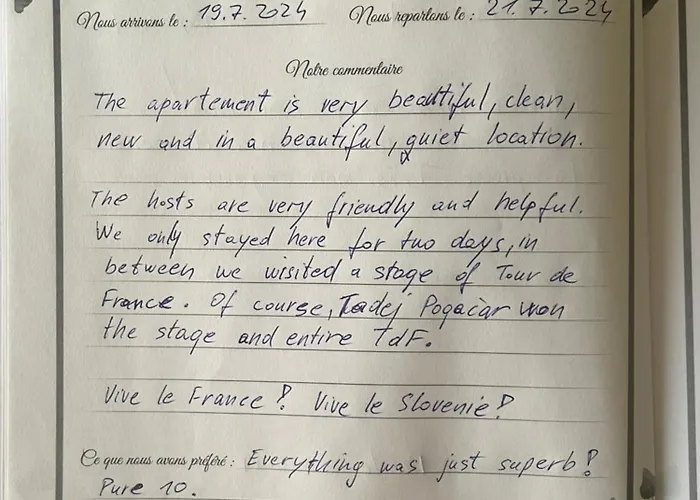 Nous arrivons le : 19.7.2024 Nous repartons le : 21.7.2024
Notre commentaire
The apartement is very beautiful, clean,
new and in a beautiful, quiet location.
The hosts are very friendly and helpful.
We only stayed here for two days, in
between we wisited a stage of Tour de
France. Of course, Tadej Pogačar won
the stage and entire TdF.
Vive le France! Vive le Slovenie!
Ce que nous avons préféré : Everything was just superb!
Pure 10.